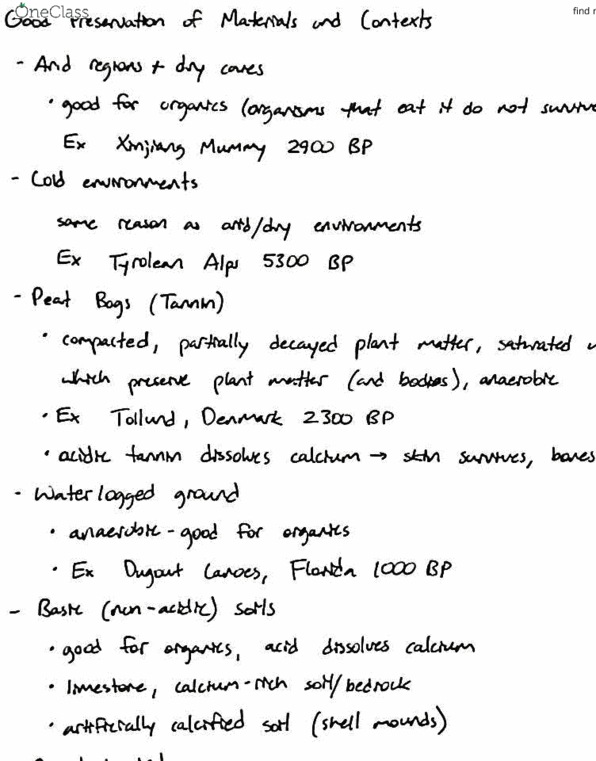 OneClass
find r
Good Preservation of Materials and Contexts
- Arid regions + dry caves
• good for organics (organisms that eat it do not survive
Ex Xinjiang Mummy 2900 BP
- Cold environments
same reason as arid/dry environments
Ex Tyrolean Alps 5300 BP
- Peat Bogs (Tannin)
• compacted, partially decayed plant matter, saturated
which preserve plant matter (and bodies), anaerobic
• Ex Tollund, Denmark 2300 BP
• acidic tannin dissolves calcium → skin survives, bones
- Water logged ground
• anaerobic - good for organics
• Ex Dugout Canoes, Florida 1000 BP
- Basic (non-acidic) soils
• good for organics, acid dissolves calcium
• limestone, calcium-rich soil/bedrock
• artificially calcified soil (shell mounds)